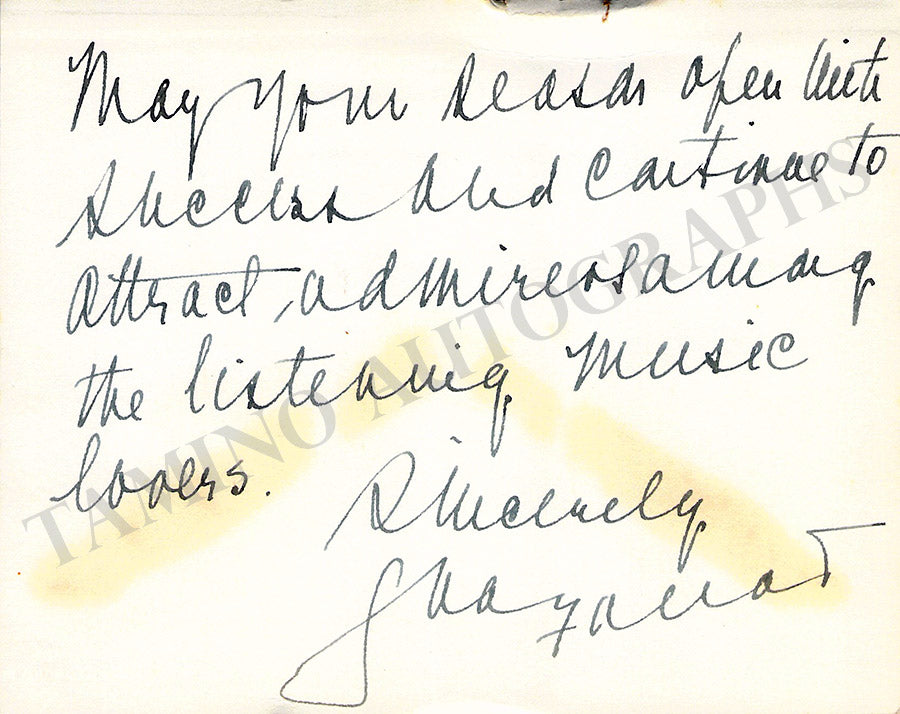 May your season open with
success and continue to
attract, admirers among
the listening music
lovers.
Sincerely
TAMINO AUTOGRAPHS